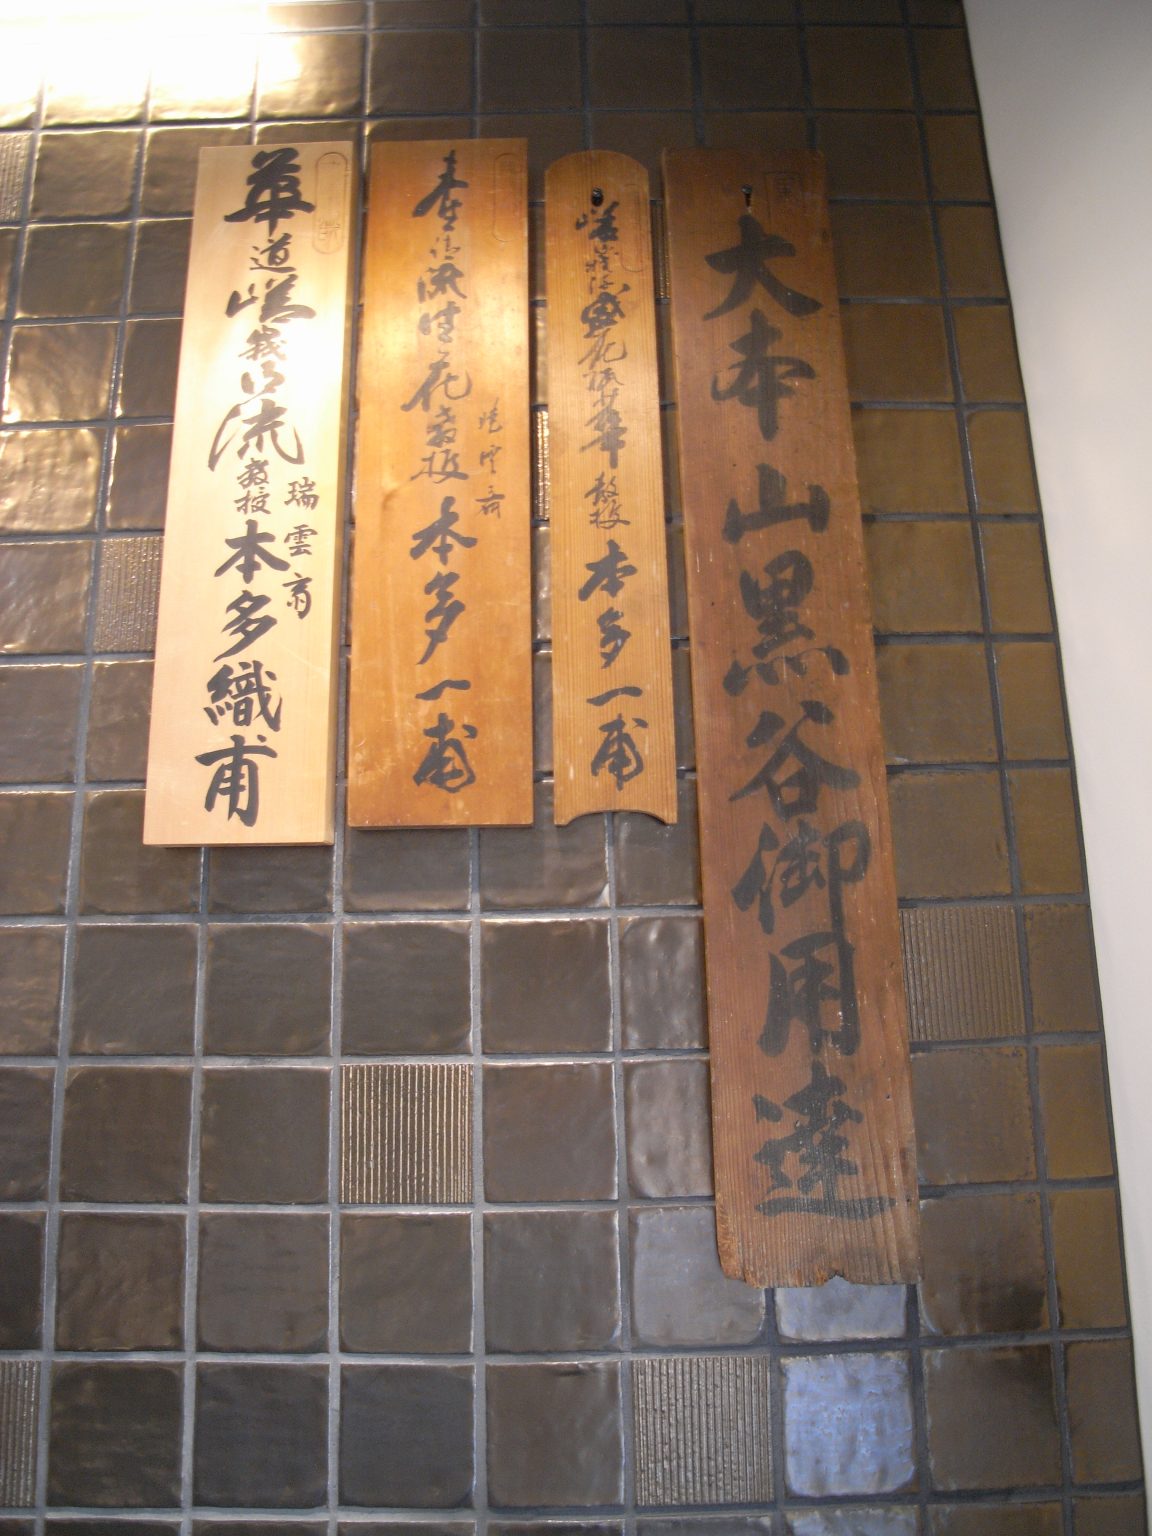 大本山黒谷御用達
嵯峨御流盛花瓶華教授 本多一甫
未生御流生花教授 本多一甫
華道嵯峨御流教授 本多織甫
瑞雲斎